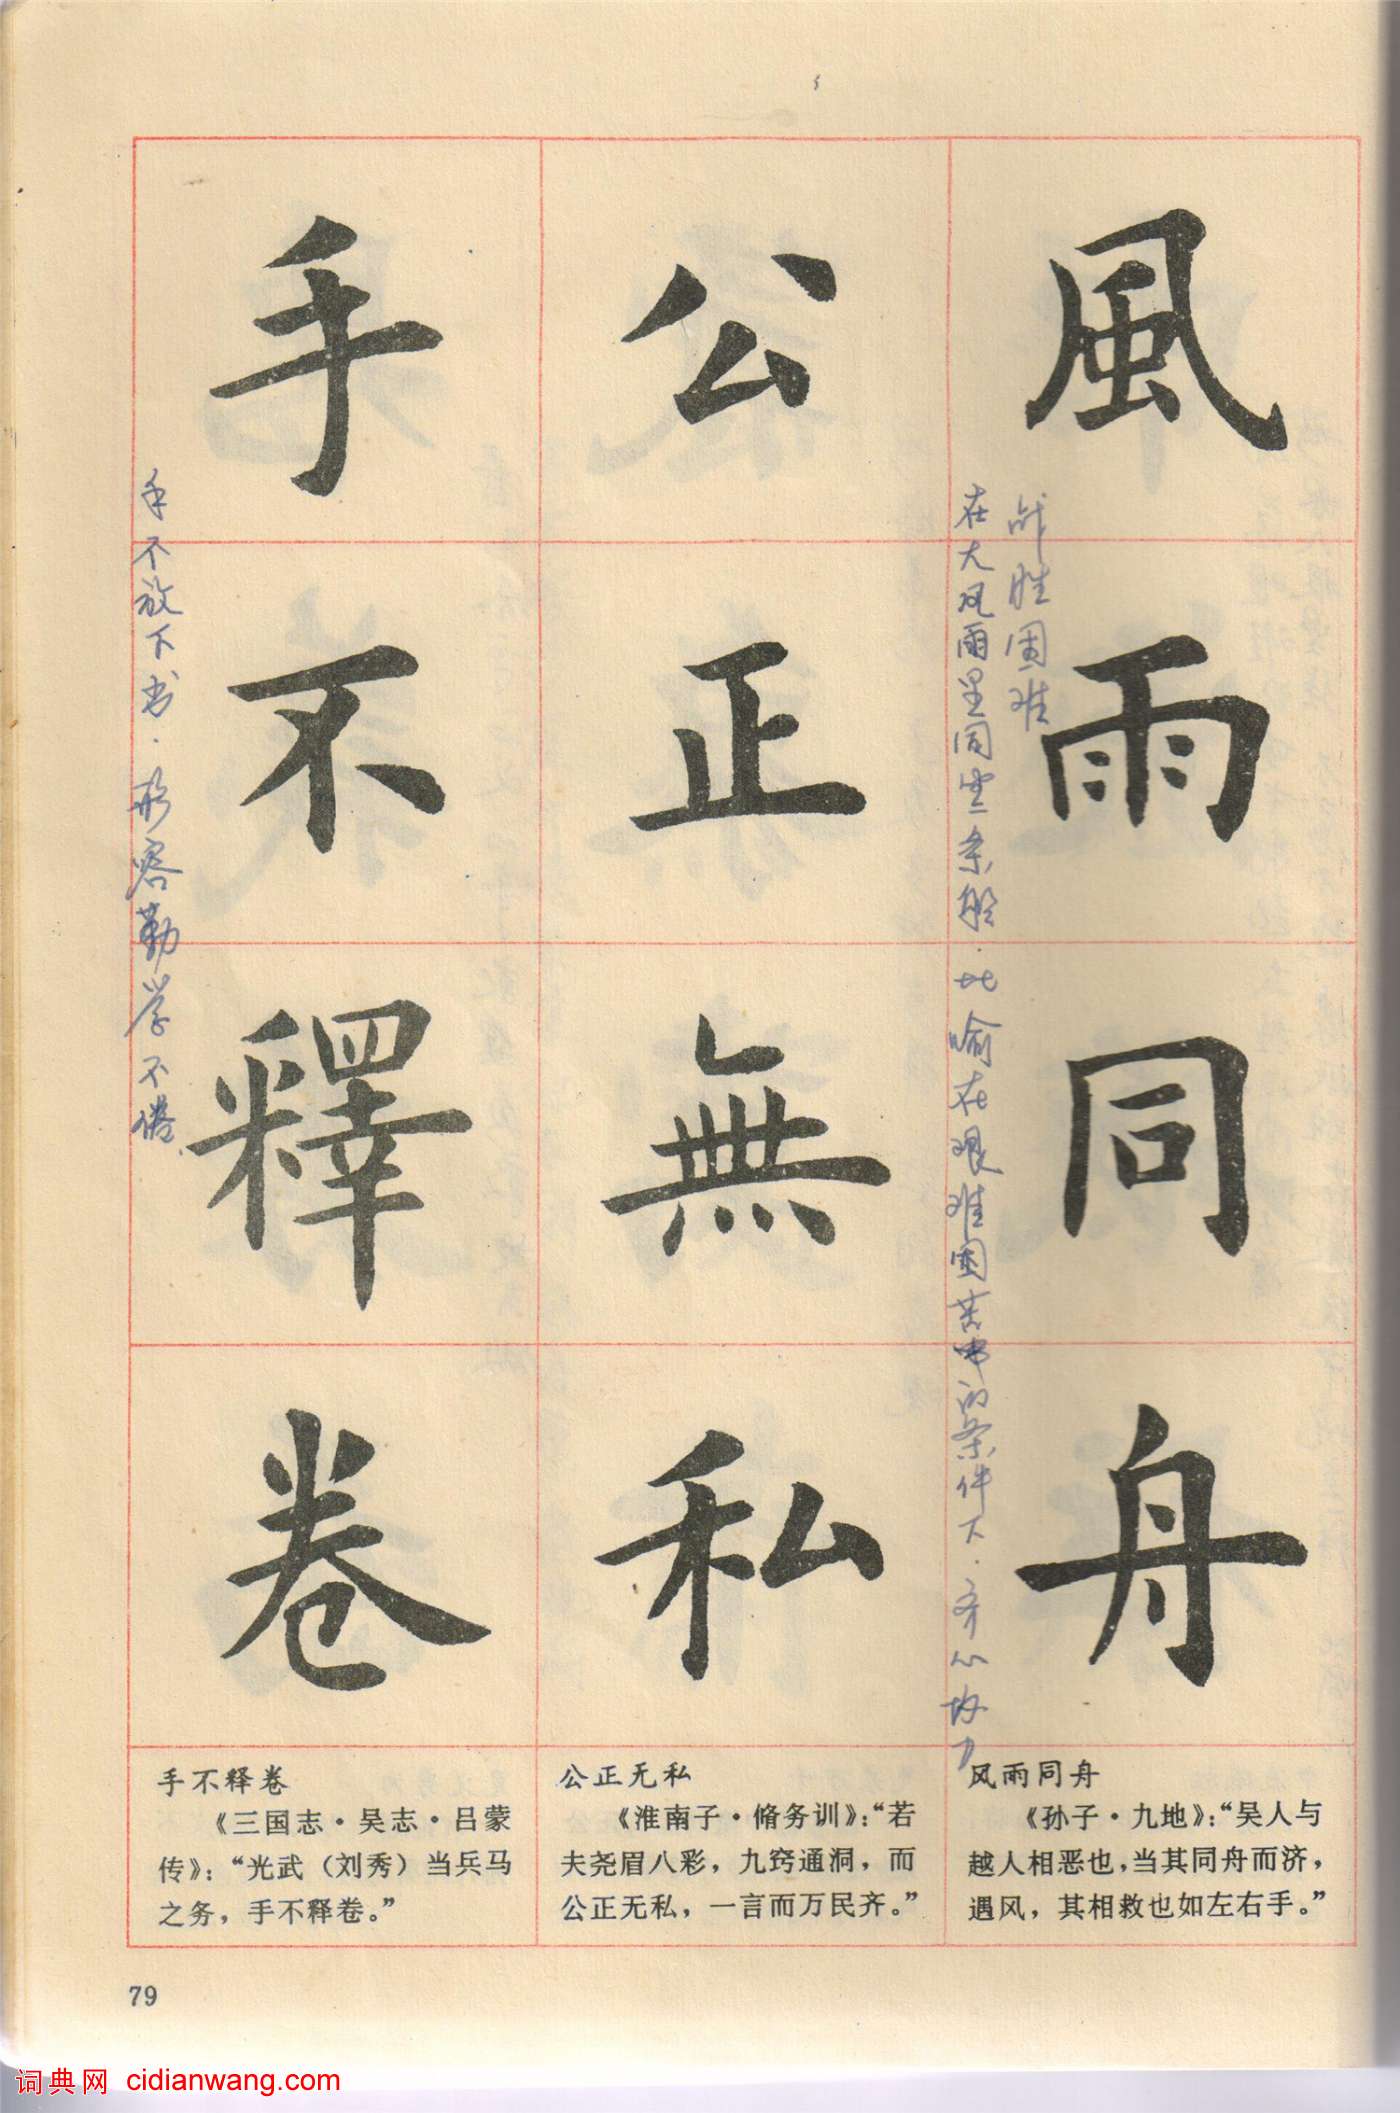 風雨同舟
在大风雨里同坐一条船．比喻在艰难困苦的条件下．齐心协力
战胜困难
公正無私
手不釋卷
手不放下书．形容勤学不倦．
风雨同舟
《孙子·九地》：“吴人与
越人相恶也，当其同舟而济，
遇风，其相救也如左右手。”
公正无私
《淮南子·脩务训》：“若
夫尧眉八彩，九窍通洞，而
公正无私，一言而万民齐。”
手不释卷
《三国志·吴志·吕蒙
传》：“光武（刘秀）当兵马
之务，手不释卷。”
79
词典网 cidianwang.com